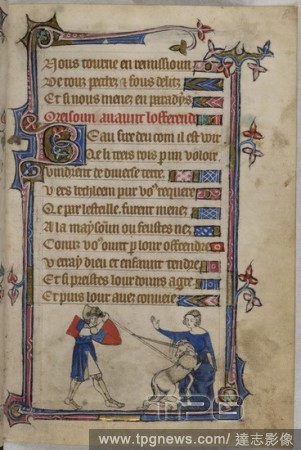 Nous tourne en remissioun
De touz pechez & fous delitz
Et si nous menez en paradys
Oreisoun auaunt l offerend
Beau sire deu com il est voir
Qe li treis rois p un voloir
Vindrent de diuerse terre
Vers bethleem pur vo9 requere
Qe p le steille furent menez
A la maysoun ou feustes nez
Com il vo9 auint p lour offrendre
Verray dieu et enfaunt tendre
Et si preistes lour douns a gre
Et puis lour auez
TPG
www.tpgnews.com / 達志影像